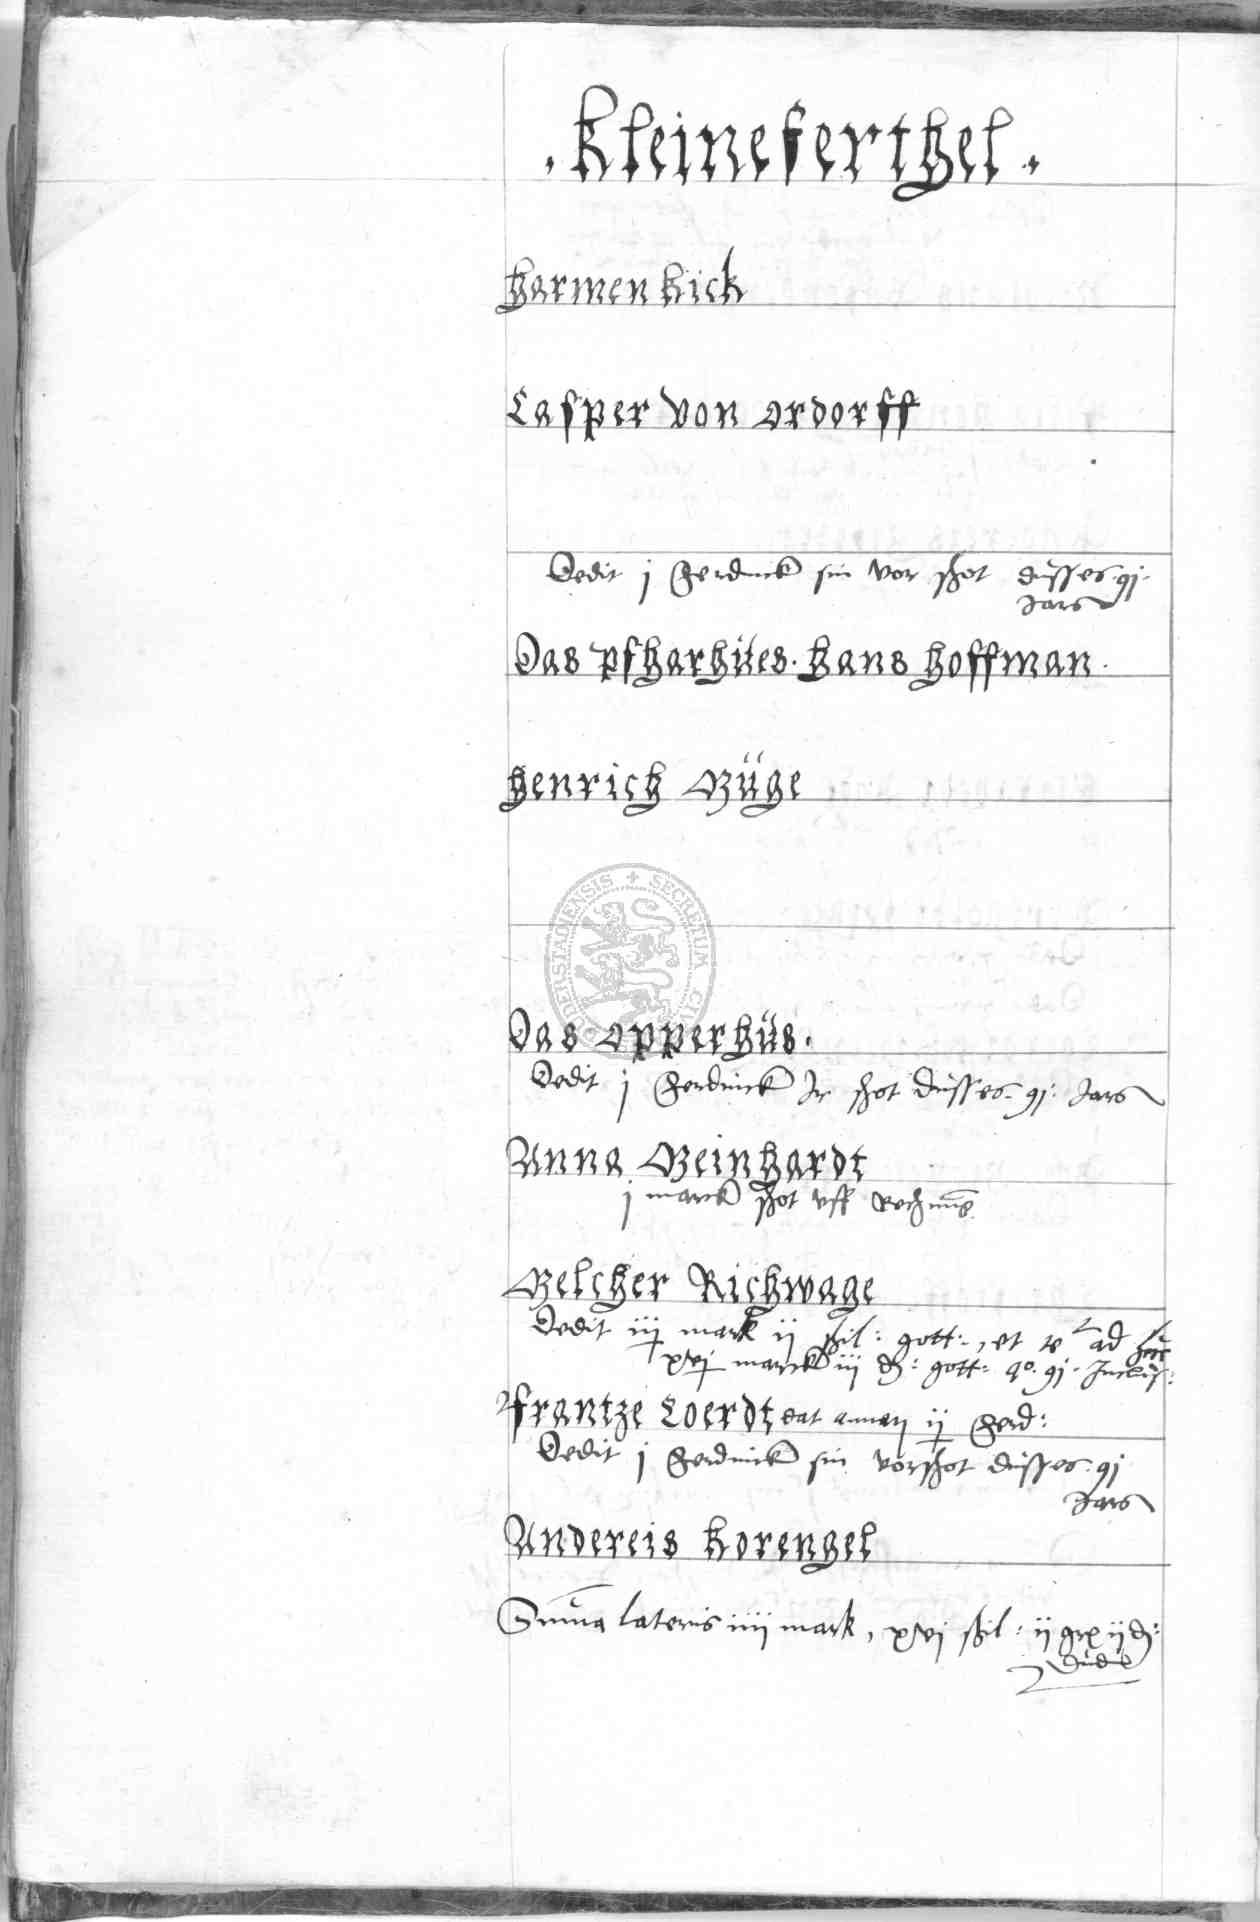 . Kleineferthel .
Harmen Kick
Casper von Ordorff
Dedit j Ferdinck sin vor schot dusses 91.
Jars
Das pfharhües. Hans Hoffman.
Henrich Müge
SECRETUM CIV DERSTADIENSIS
Das Opperhüs.
Dedit j Ferdinck Jr schot düsses. 91. Jars
Anna Meinhardt
j marck schot vff Rechnūg
Melcher Richwage
Dedit iij mark ij schil: gott:, et te ad
xvj marck iij d: gott: ao. 91. Inclus:
Frantze Coerdt dat annam ij Ferd:
Dedit j Ferdinck sin vorschot düsses. 91
Jars
Andereis Korengel
Summa lateris iiij mark, xvj schil: ij gr ij d:
Dudē